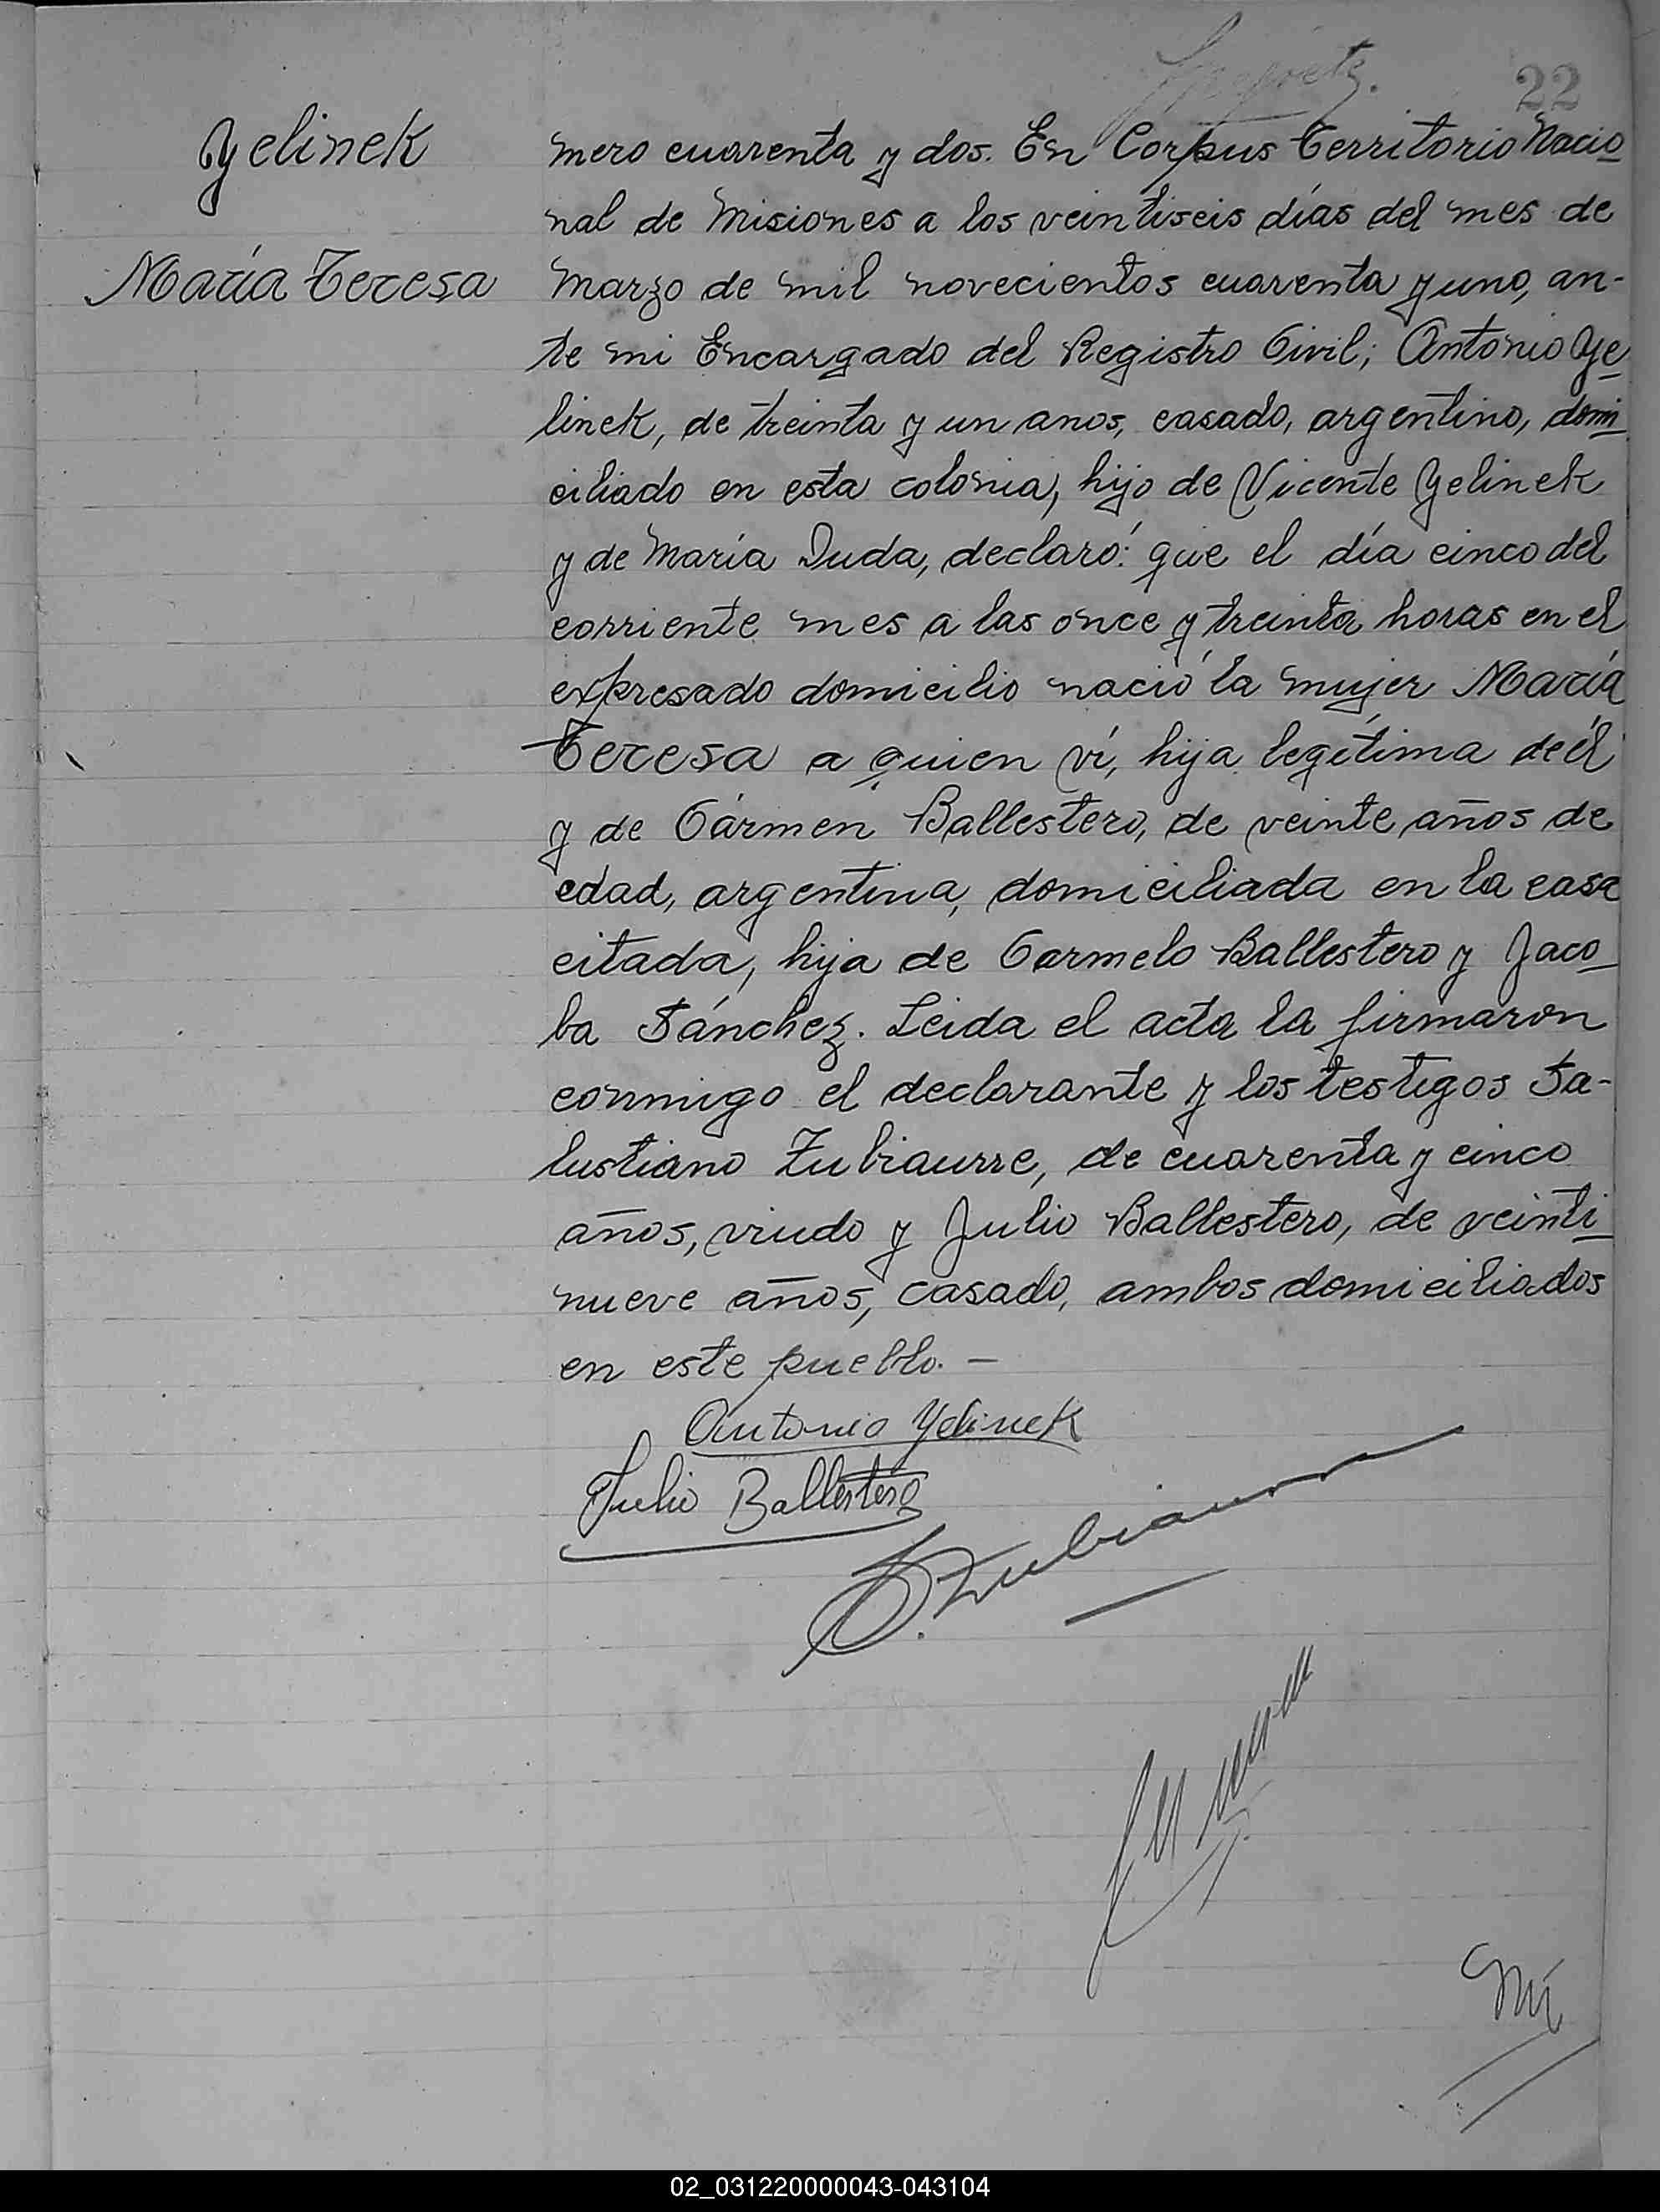 22
Yelinek
María Teresa
mero cuarenta y dos. En Corpus Territorio Nacio
nal de Misiones a los veintiseis días del mes de
Marzo de mil novecientos cuarenta y uno, an-
te mi Encargado del Registro Civil; Antonio Ye
linek, de treinta y un anos, casado, argentino, domi
ciliado en esta colonia, hijo de Vicente Yelinek
y de María Duda, declaró: que el día cinco del
corriente mes a las once y treinta horas en el
expresado domicilio nació la mujer María
Teresa a quien ví, hija legítima de él
y de Cármen Ballestero, de veinte años de
edad, argentina, domiciliada en la casa
citada, hija de Carmelo Ballestero y Jaco
ba Sánchez. Leida el acta la firmaron
conmigo el declarante y los testigos Sa-
lustiano Zubiaurre, de cuarenta y cinco
años, viudo y Julio Ballestero, de veinti
nueve años, casado, ambos domiciliados
en este pueblo. —
Antonio Yelinek
Julio Ballestero
S. Zubiaurre
Nú
02_031220000043-043104